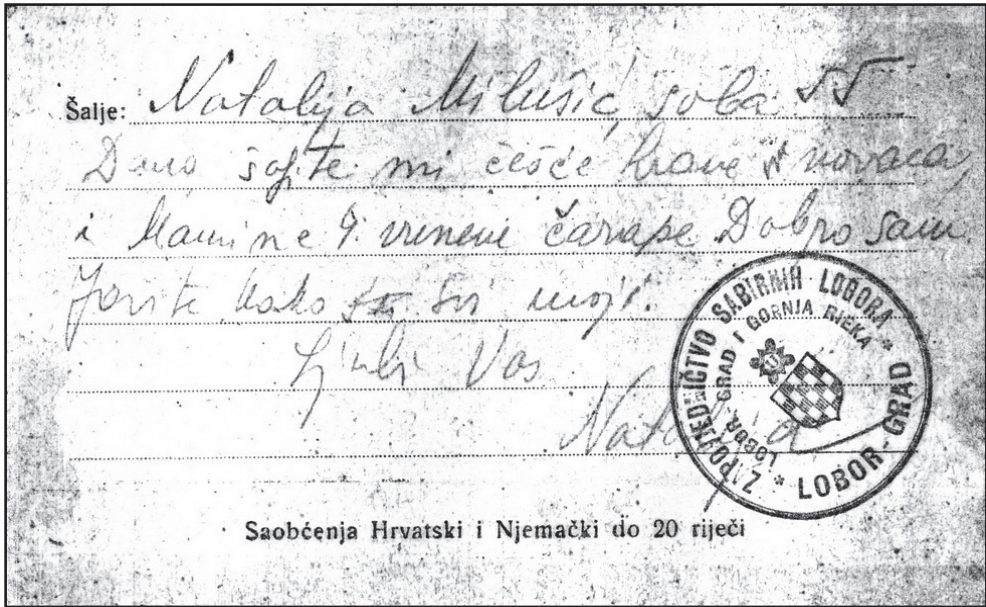 Šalje: Natalija Milušić, soba 55
šaljte mi češće hrane i novaca,
i Mamine čarape Dobro sam
Javite kako su svi moji.
Ljubi Vas
Natalija
ZAPOVJEDNIČTVO SABIRNIH LOBORA * LOBOR-GRAD *
LOBOR GRAD I GORNJA RIEKA
Saobćenja Hrvatski i Njemački do 20 riječi